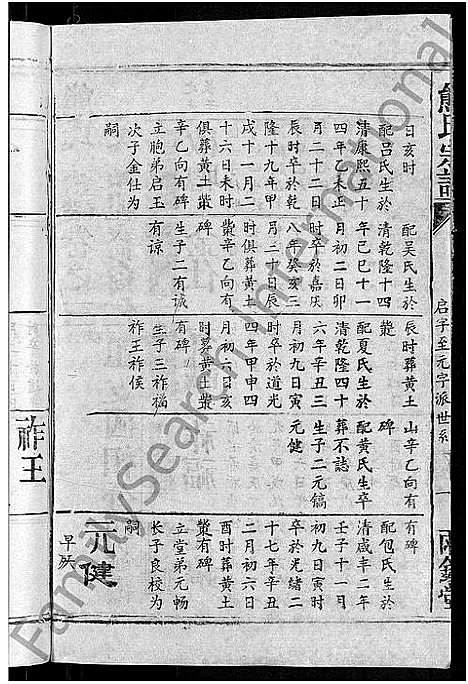 熊氏宗譜
启字至元字派世系
日亥時
配吕氏生於
清康熙五十
四年乙未正
月二十二日
辰時卒於乾
隆十九年甲
戌十一月二
十六日未時
俱葬黄土塋
辛乙向有碑
立胞弟启玉
次子金仕为
嗣
配吴氏生於
清乾隆十四
年己巳十一
月初二日卯
时卒於嘉庆
八年癸亥三
月二十日辰
时俱葬黄土
塋辛乙向有
碑
生子二有诚
有谅
辰时葬黄土
塋
配夏氏生於
清乾隆四十
六年辛丑三
月初九日寅
时卒於道光
四年甲申四
月初六日亥
时葬黄土塋
有碑
生子二祚福
祚王祚侯
山辛乙向有
碑
配黄氏生卒
葬不誌
生子二元鎬
元健
有碑
配包氏生於
清咸丰二年
壬子十一月
初九日寅时
卒於光绪二
十七年辛丑
二月初六日
酉时葬黄土
塋有碑
立堂弟元畅
长子良校为
嗣
祚王
元健
早殁
FamilySearch International